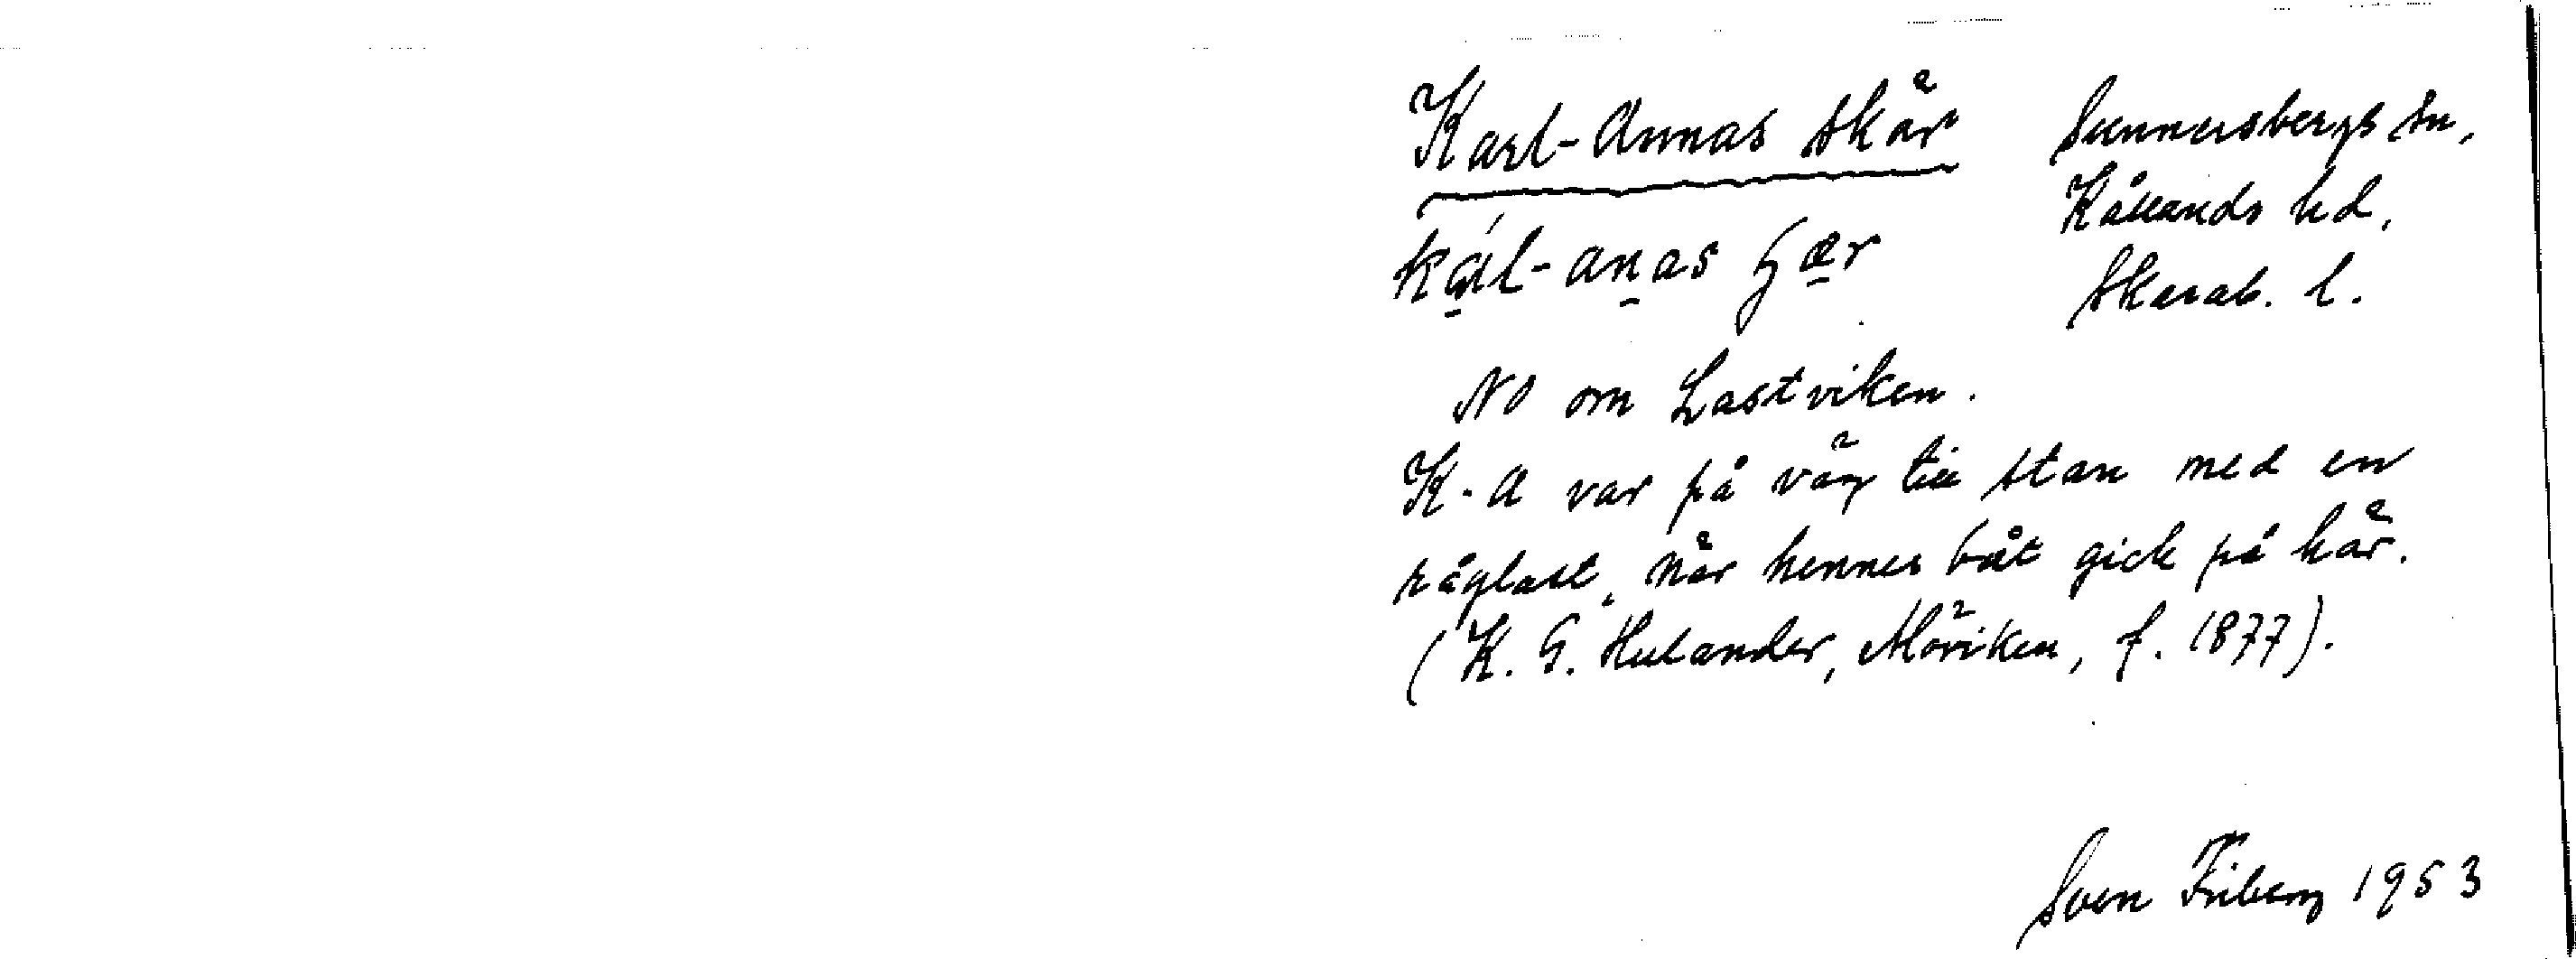 Karl-Annas skär
Sunnersbergs sn,
Kållands hd,
Skarab. l.
kál-anas ʃær
NO om Lastviken.
K-A var på väg till stan med en
råglast, när hennes båt gick på här.
(K. G. Hulander, Mörviken, f. 1877).
Sven Friberg 1953